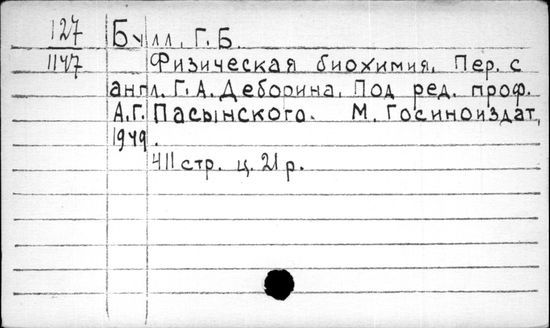 127 Булл, Г. Б.
1147 Физическая биохимия. Пер. с
англ. Г. А. Деборина. Под ред. проф.
А. Г. Пасынского. М. Госиноиздат,
1949.
411 стр. ц. 21 р.